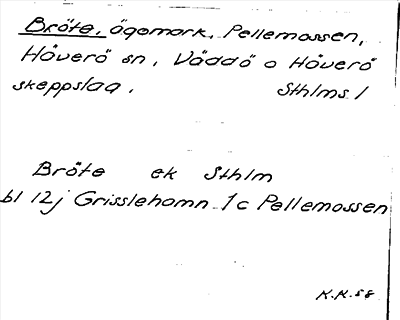 Bråte, ägomark, Pellemossen,
Häverö sn, Väddö o Häverö
skeppslag. Sthlms l
Bråte ek Sthlm
bl 12j Grisslehamn 1c Pellemossen
K.K. 58